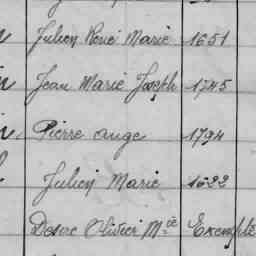 Julien René Marie 1651
Jean Marie Joseph 1545
Pierre ange 1794
Julien Marie 1622
Desire Olivier Mie Exempté